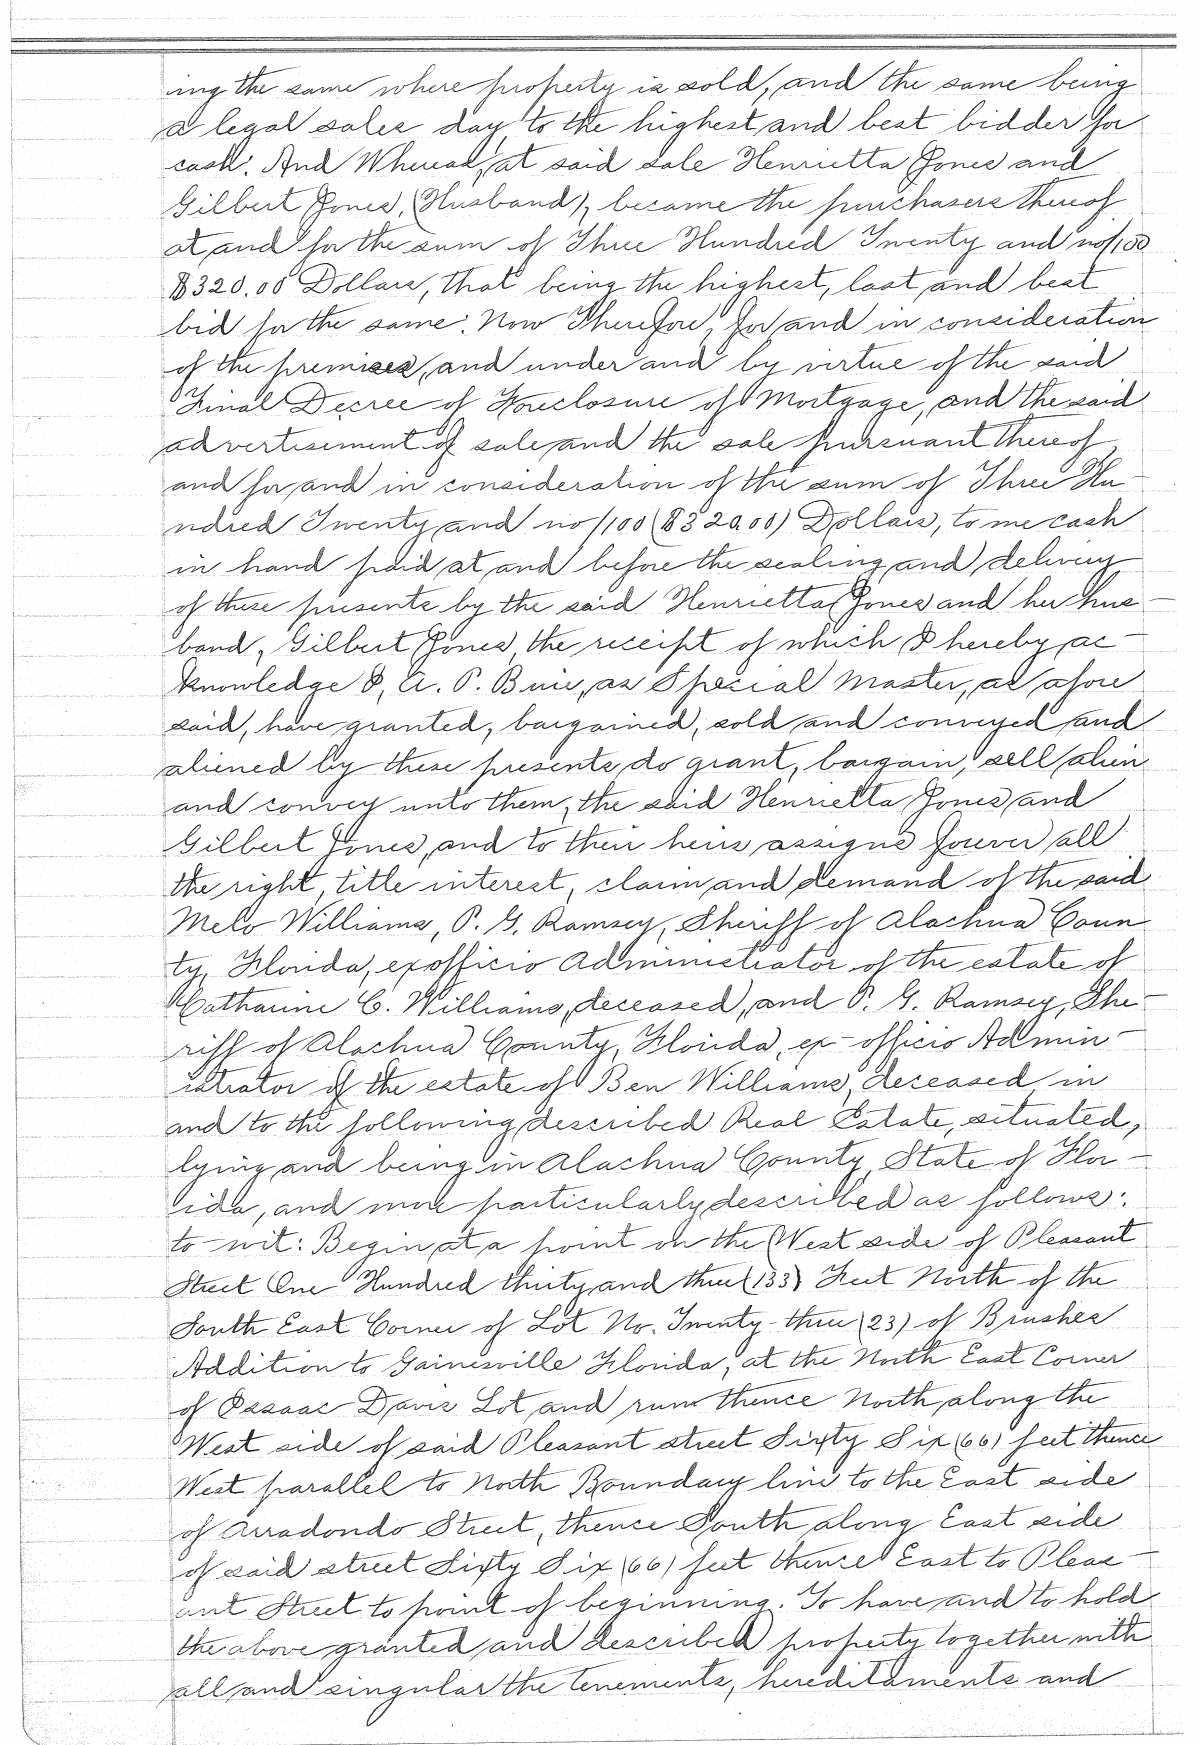 ing the same where property is sold, and the same being
a legal sales day to the highest and best bidder for
cash. And Whereas, at said sale Henrietta Jones and
Gilbert Jones, (Husband), became the purchasers thereof
at and for the sum of Three Hundred Twenty and no/100
$320.00 Dollars, that being the highest, last and best
bid for the same. Now Therefore, for and in consideration
of the premises, and under and by virtue of the said
Final Decree of Foreclosure of Mortgage, and the said
advertisement of sale and the sale pursuant thereof,
and for and in consideration of the sum of Three Hu-
ndred Twenty and no/100 ($320.00) Dollars, to me cash
in hand paid at and before the sealing and delivery
of these presents by the said Henrietta Jones and her hus-
band, Gilbert Jones, the receipt of which I hereby ac-
knowledge I, A. P. Buie, as Special Master, as afore
said, have granted, bargained, sold and conveyed and
aliened by these presents do grant, bargain, sell alien
and convey unto them, the said Henrietta Jones and
Gilbert Jones, and to their heirs assigns forever all
the right, title interest, claim and demand of the said
Melo Williams, P. G. Ramsey, Sheriff of Alachua Coun
ty, Florida, exofficio Administrator of the estate of
Catharine C. Williams, deceased, and P. G. Ramsey, She-
riff of Alachua County, Florida, ex-officio Admin-
istrator of the estate of Ben Williams, deceased in
and to the following described Real Estate, situated,
lying and being in Alachua County, State of Flor-
ida, and more particularly described as follows:
to wit: Begin at a point on the West side of Pleasant
Street One Hundred thirty and three (133) Feet North of the
South East Corner of Lot No. Twenty-three (23) of Brushes
Addition to Gainesville Florida, at the North East Corner
of Issaac Davis Lot and run thence North along the
West side of said Pleasant street Sixty Six (66) feet thence
West parallel to North Boundary line to the East side
of Arradondo Street, thence South along East side
of said street Sixty Six (66) feet thence East to Pleas-
ant Street to point of beginning. To have and to hold
the above granted and described property together with
all and singular the tenements, hereditaments and